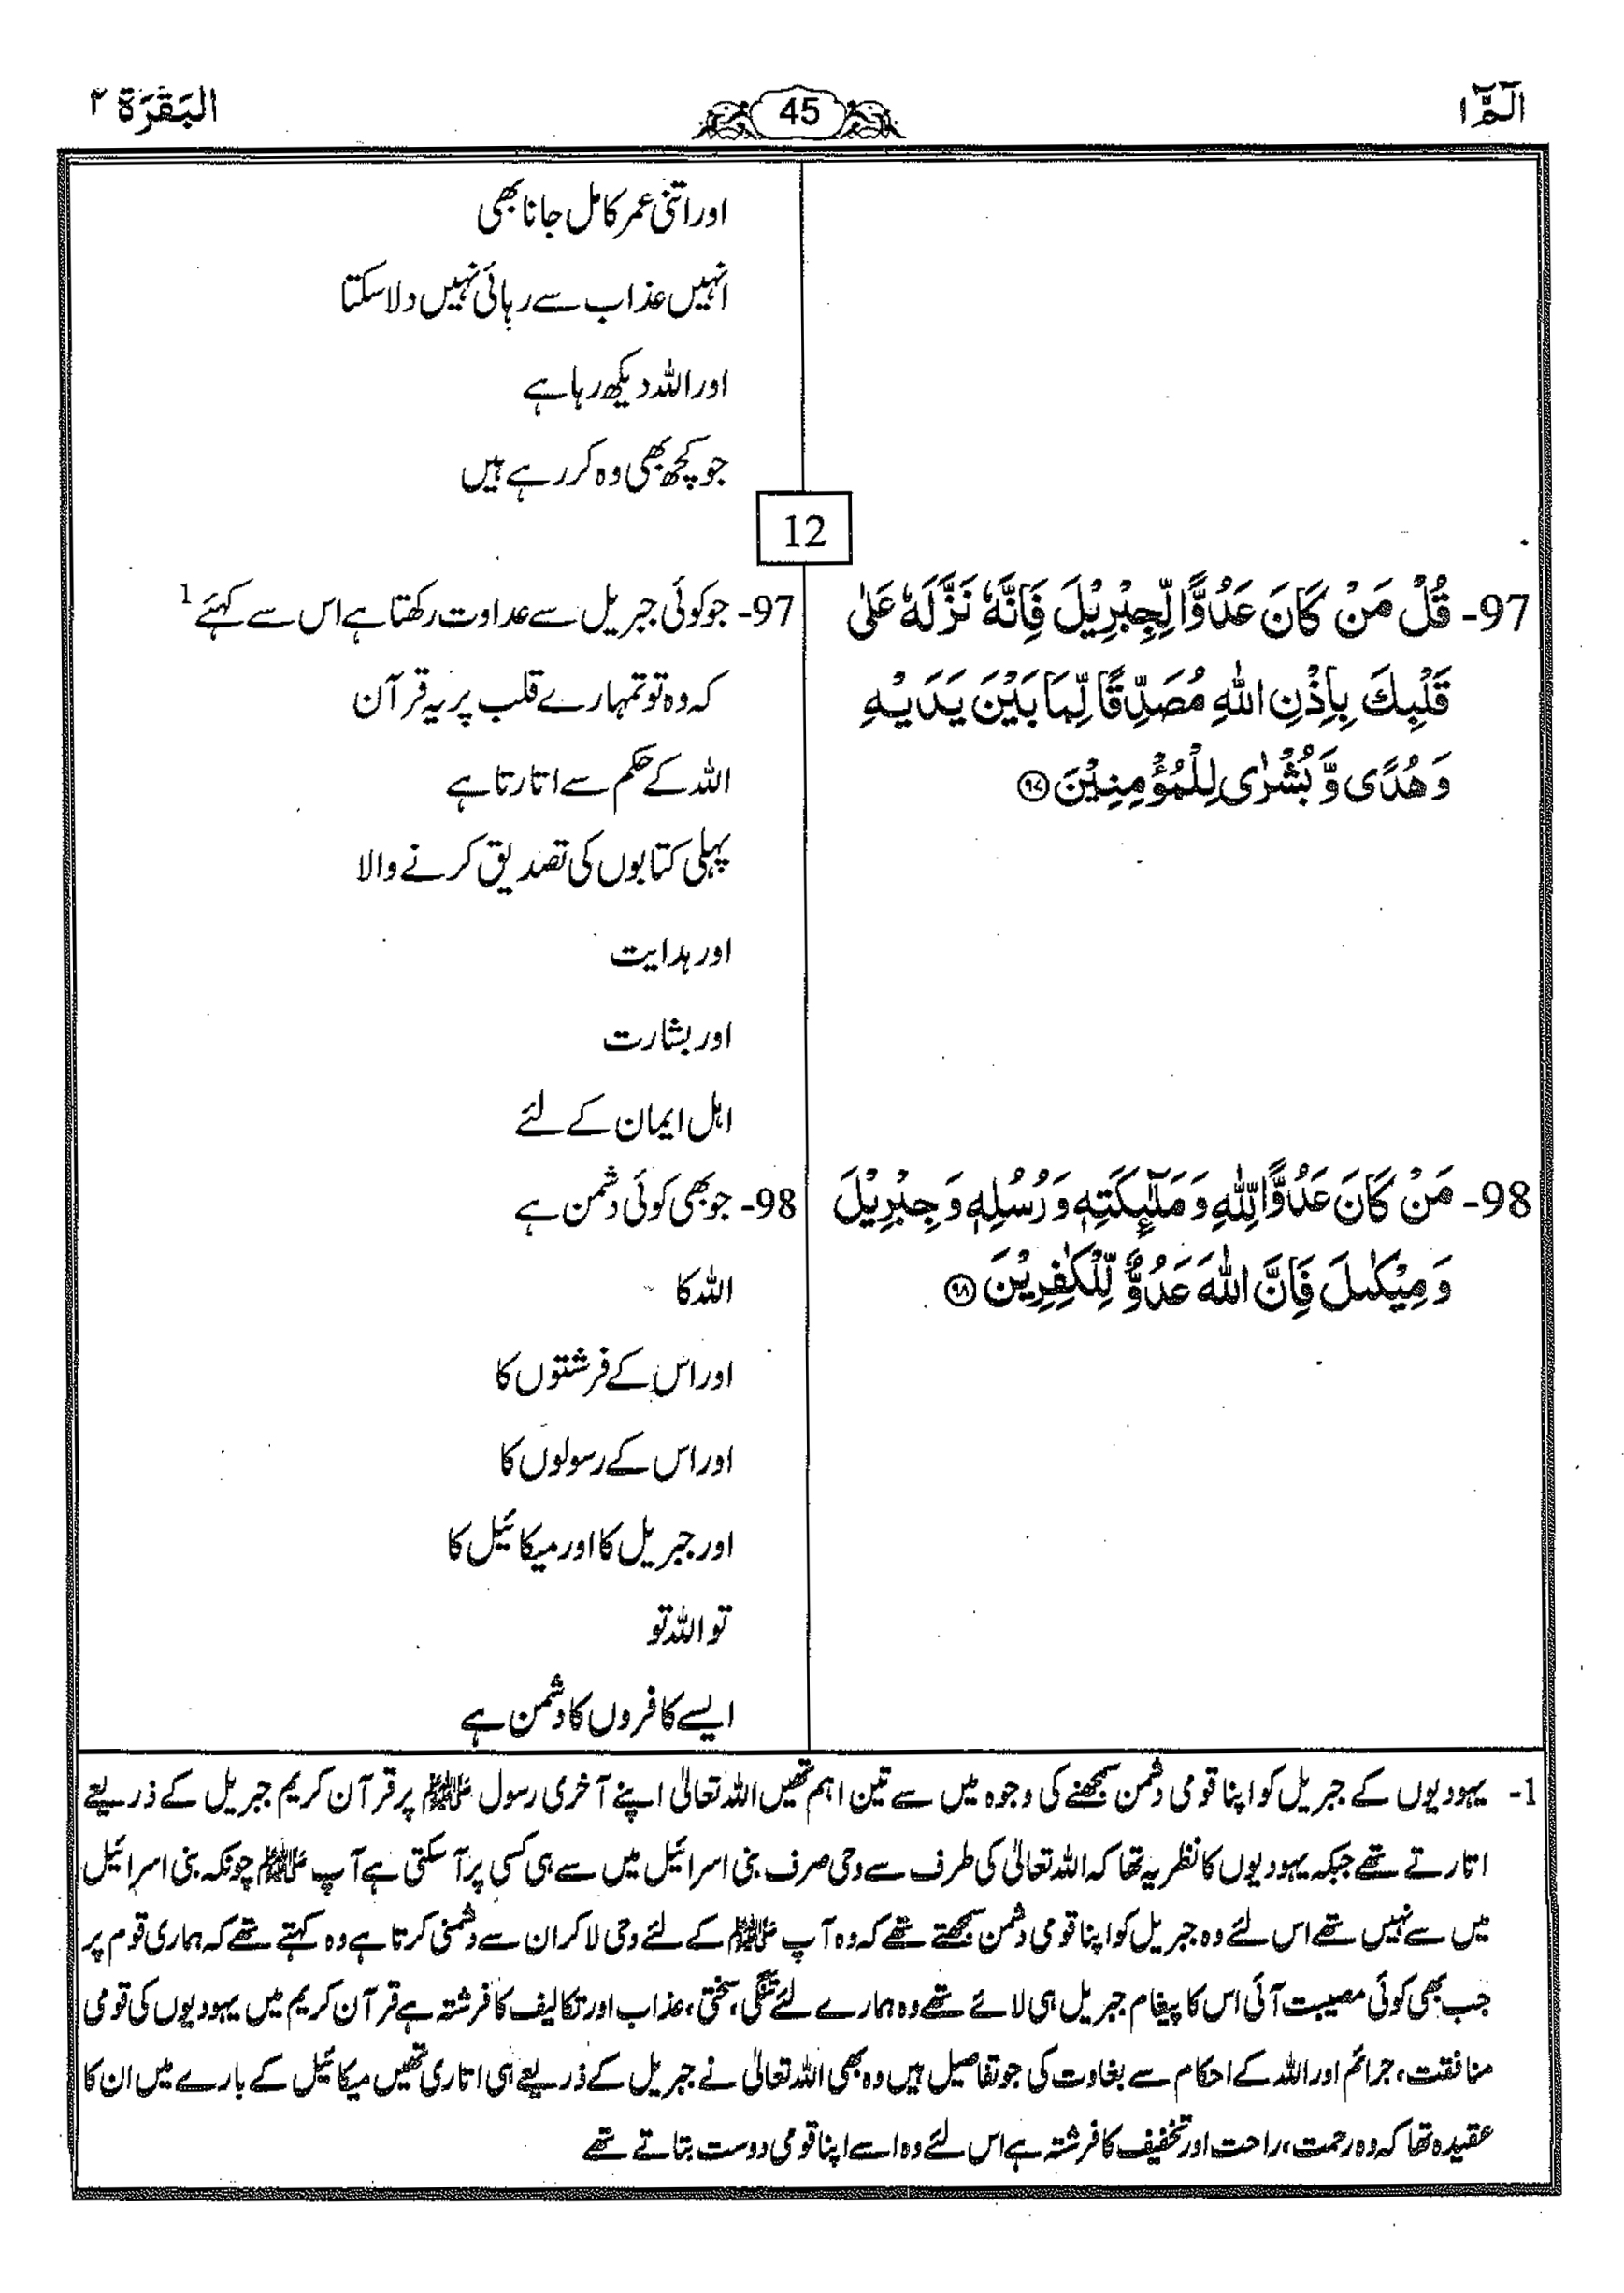 الٓمّٓ ۱
45
البَقَرَة ۲
اور اتنی عمر کا مل جانا بھی
انہیں عذاب سے رہائی نہیں دلا سکتا
اور اللہ دیکھ رہا ہے
جو کچھ بھی وہ کر رہے ہیں
12
97- قُلْ مَنْ كَانَ عَدُوًّا لِّجِبْرِيْلَ فَاِنَّهٗ نَزَّلَهٗ عَلٰى
قَلْبِكَ بِاِذْنِ اللّٰهِ مُصَدِّقًا لِّمَا بَيْنَ يَدَيْهِ
وَهُدًى وَّبُشْرٰى لِلْمُؤْمِنِيْنَ ۹۷
97- جو کوئی جبریل سے عداوت رکھتا ہے اس سے کہئے 1
کہ وہ تو تمہارے قلب پر یہ قرآن
اللہ کے حکم سے اتارتا ہے
پہلی کتابوں کی تصدیق کرنے والا
اور ہدایت
اور بشارت
اہل ایمان کے لئے
98- مَنْ كَانَ عَدُوًّا لِّلّٰهِ وَمَلٰٓئِكَتِهٖ وَرُسُلِهٖ وَجِبْرِيْلَ
وَمِيْكٰىلَ فَاِنَّ اللّٰهَ عَدُوٌّ لِّلْكٰفِرِيْنَ ۹۸
98- جو بھی کوئی دشمن ہے
اللہ کا
اور اس کے فرشتوں کا
اور اس کے رسولوں کا
اور جبریل کا اور میکائیل کا
تو اللہ تو
ایسے کافروں کا دشمن ہے
1- یہودیوں کے جبریل کو اپنا قومی دشمن سمجھنے کی وجوہ میں سے تین اہم تھیں اللہ تعالیٰ اپنے آخری رسول ﷺ پر قرآن کریم جبریل کے ذریعے
اتارتے تھے جبکہ یہودیوں کا نظریہ تھا کہ اللہ تعالیٰ کی طرف سے وحی صرف بنی اسرائیل میں سے ہی کسی پر آ سکتی ہے آپ ﷺ چونکہ بنی اسرائیل
میں سے نہیں تھے اس لئے وہ جبریل کو اپنا قومی دشمن سمجھتے تھے کہ وہ آپ ﷺ کے لئے وحی لا کر ان سے دشمنی کرتا ہے وہ کہتے تھے کہ ہماری قوم پر
جب بھی کوئی مصیبت آئی اس کا پیغام جبریل ہی لائے تھے وہ ہمارے لئے تنگی، سختی، عذاب اور تکالیف کا فرشتہ ہے قرآن کریم میں یہودیوں کی قومی
منافقت، جرائم اور اللہ کے احکام سے بغاوت کی جو تفاصیل ہیں وہ بھی اللہ تعالیٰ نے جبریل کے ذریعے ہی اتاری تھیں میکائیل کے بارے میں ان کا
عقیدہ تھا کہ وہ رحمت، راحت اور تخفیف کا فرشتہ ہے اس لئے وہ اسے اپنا قومی دوست بتاتے تھے